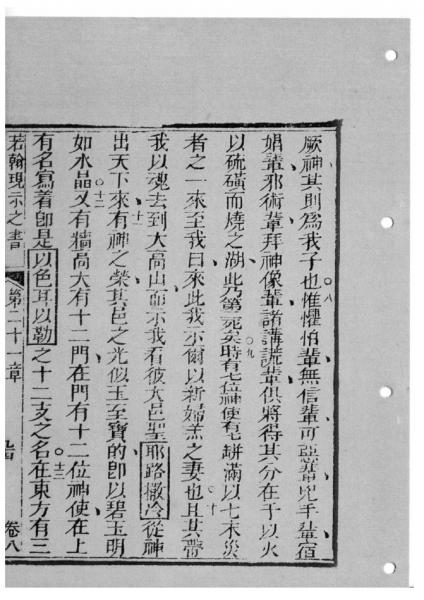 厥神其則為我子也惟懼怕輩無信輩可惡輩兇手輩宿
娼輩邪術輩拜神像輩諸講謊輩俱將得其分在于以火
以硫磺而燒之湖此乃第二死矣時有七位神使有七缾滿以七末災
者之一來至我曰來此我示爾以新婦羔之妻也且其帶
我以魂去到大高山而示我看彼大邑聖耶路撒冷從神
出天下來有神之榮其邑之光似玉至寶的即以碧玉明
如水晶又有牆高大有十二門在門有十二位神使在上
有名寫着即是以色耳以勒之十二支之名在東方有三
若翰現示之書 第二十一章 卷八